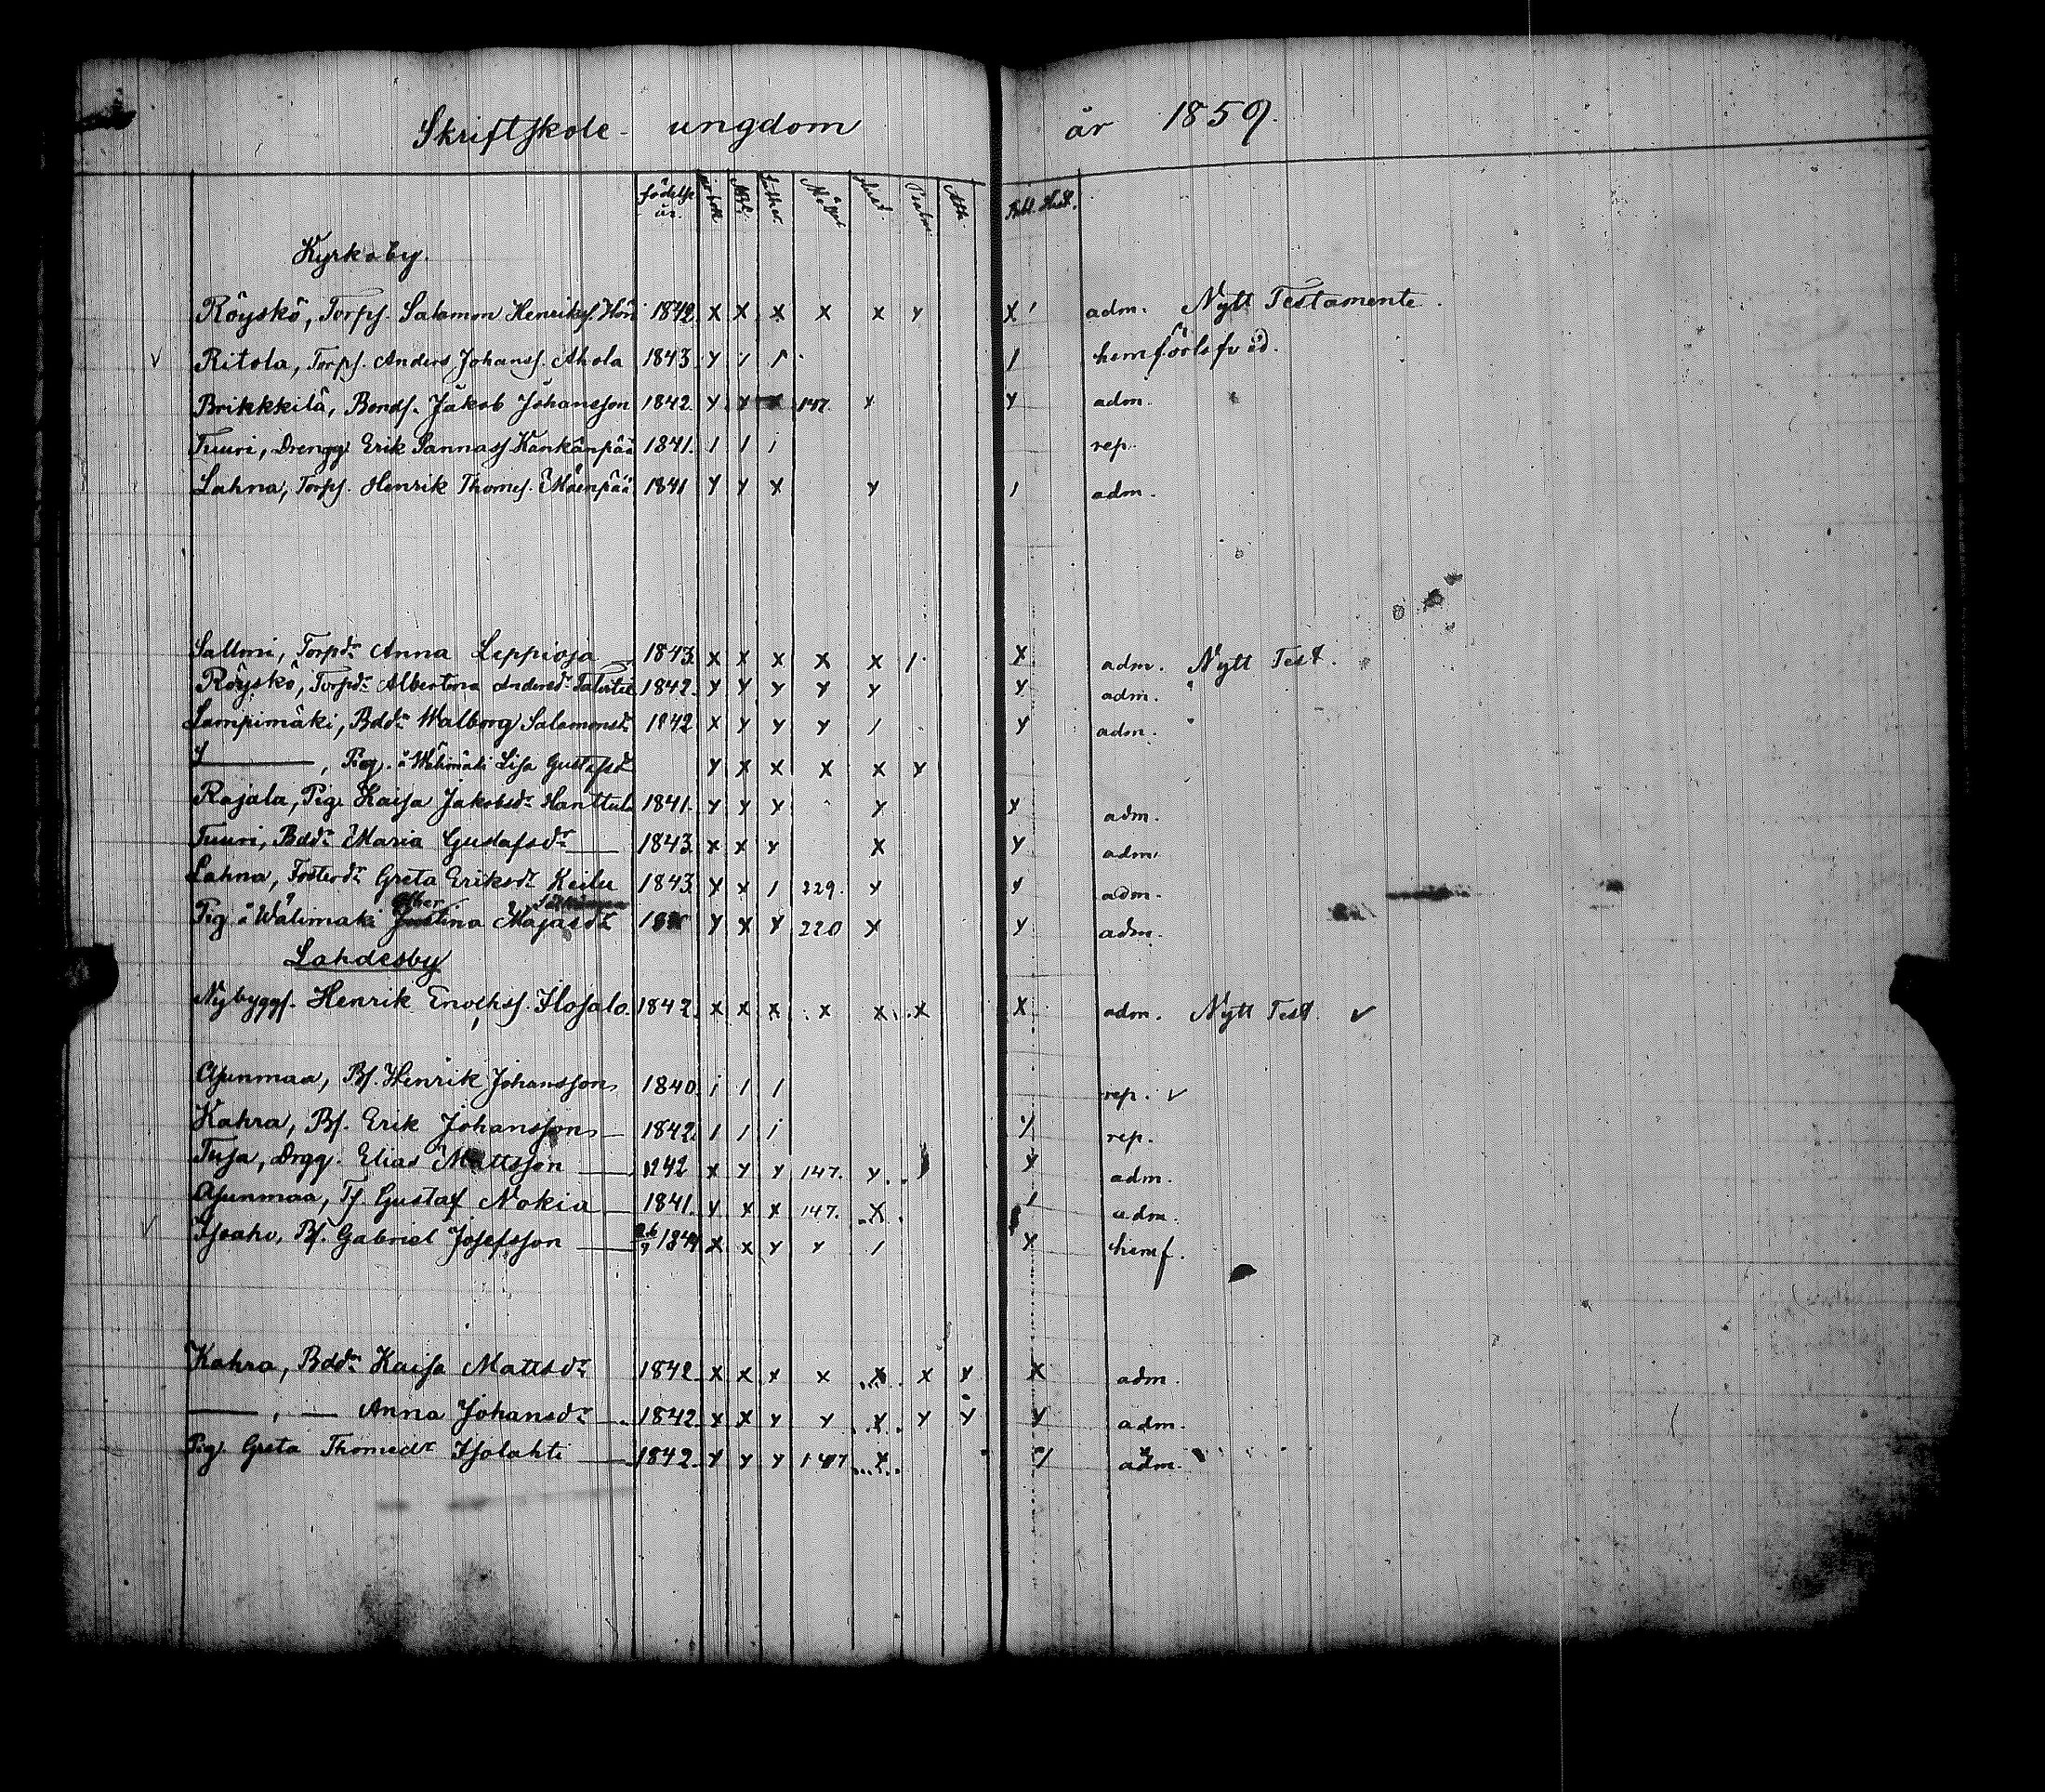 Skriftskole-ungdom år 1859.
födelse år. Luther. Psalm. Bibl. Hist.
Kyrkoby.
Röyskö, Torps. Salomon Henrikss. 1842 x x x x x y x / adm. Nytt Testamente.
v Ritola, Torps. Anders Johanss. Ahola 1843 y / / / hemförlofvad.
Brikkkilä, Bonds. Jakob Johansson 1842 y y x 147. x y adm.
Tuuri, Drengg. Erik Sannass. Kankänpää 1841. / / / rep.
Lahna, Torps. Henrik Thomes. Mäenpää 1841 y y x y / adm.
Salloni, Torpdr Anna Leppioja 1843. x x x x x / x adm. Nytt Test.
Röyskö, Torpdr Albertina Andersdr 1842. y y y y y y adm.
Lampimäki, Bddr Walborg Salamonsdr 1842 x y y y / y adm.
——, Pig. å Wälimäki Lisa Gustafsdr y x x x x y
Rajala, Pig. Kaisa Jakobsdr Hanttula 1841. y y y y y adm.
Tuuri, Bddr Maria Gustafsdr 1843 x x y x y adm.
Lahna, Fosterdr Greta Eriksdr Keilu 1843 x x / 229. y y adm.
Pig. å Wälimäki Justina Majasdr y x y 220 x y adm.
Lahdesby
Nybyggs. Henrik Enochss. Ilosalo. 1842. x x x x x x x adm. Nytt Test. v
Ajunmaa, Bs. Henrik Johansson 1840. / / / rep. v
Kahra, Bs. Erik Johansson 1842. / / / y rep.
Tuja, Drgg. Elias Mattsson 1242 x y y 147. y y adm.
Ajunmaa, Ts. Gustaf Nokia 1841. y x x 147. x / adm.
v Isoaho, Bs. Gabriel Josefsson 1844 x x y y / x hemf.
Kahra, Bddr Kaisa Mattsdr 1842 x x x x x x y x adm.
——, — Anna Johansdr 1842 x x y y x y y y adm.
Pig. Greta Thomedr Isolahti 1842 y y y 147 x y adm.